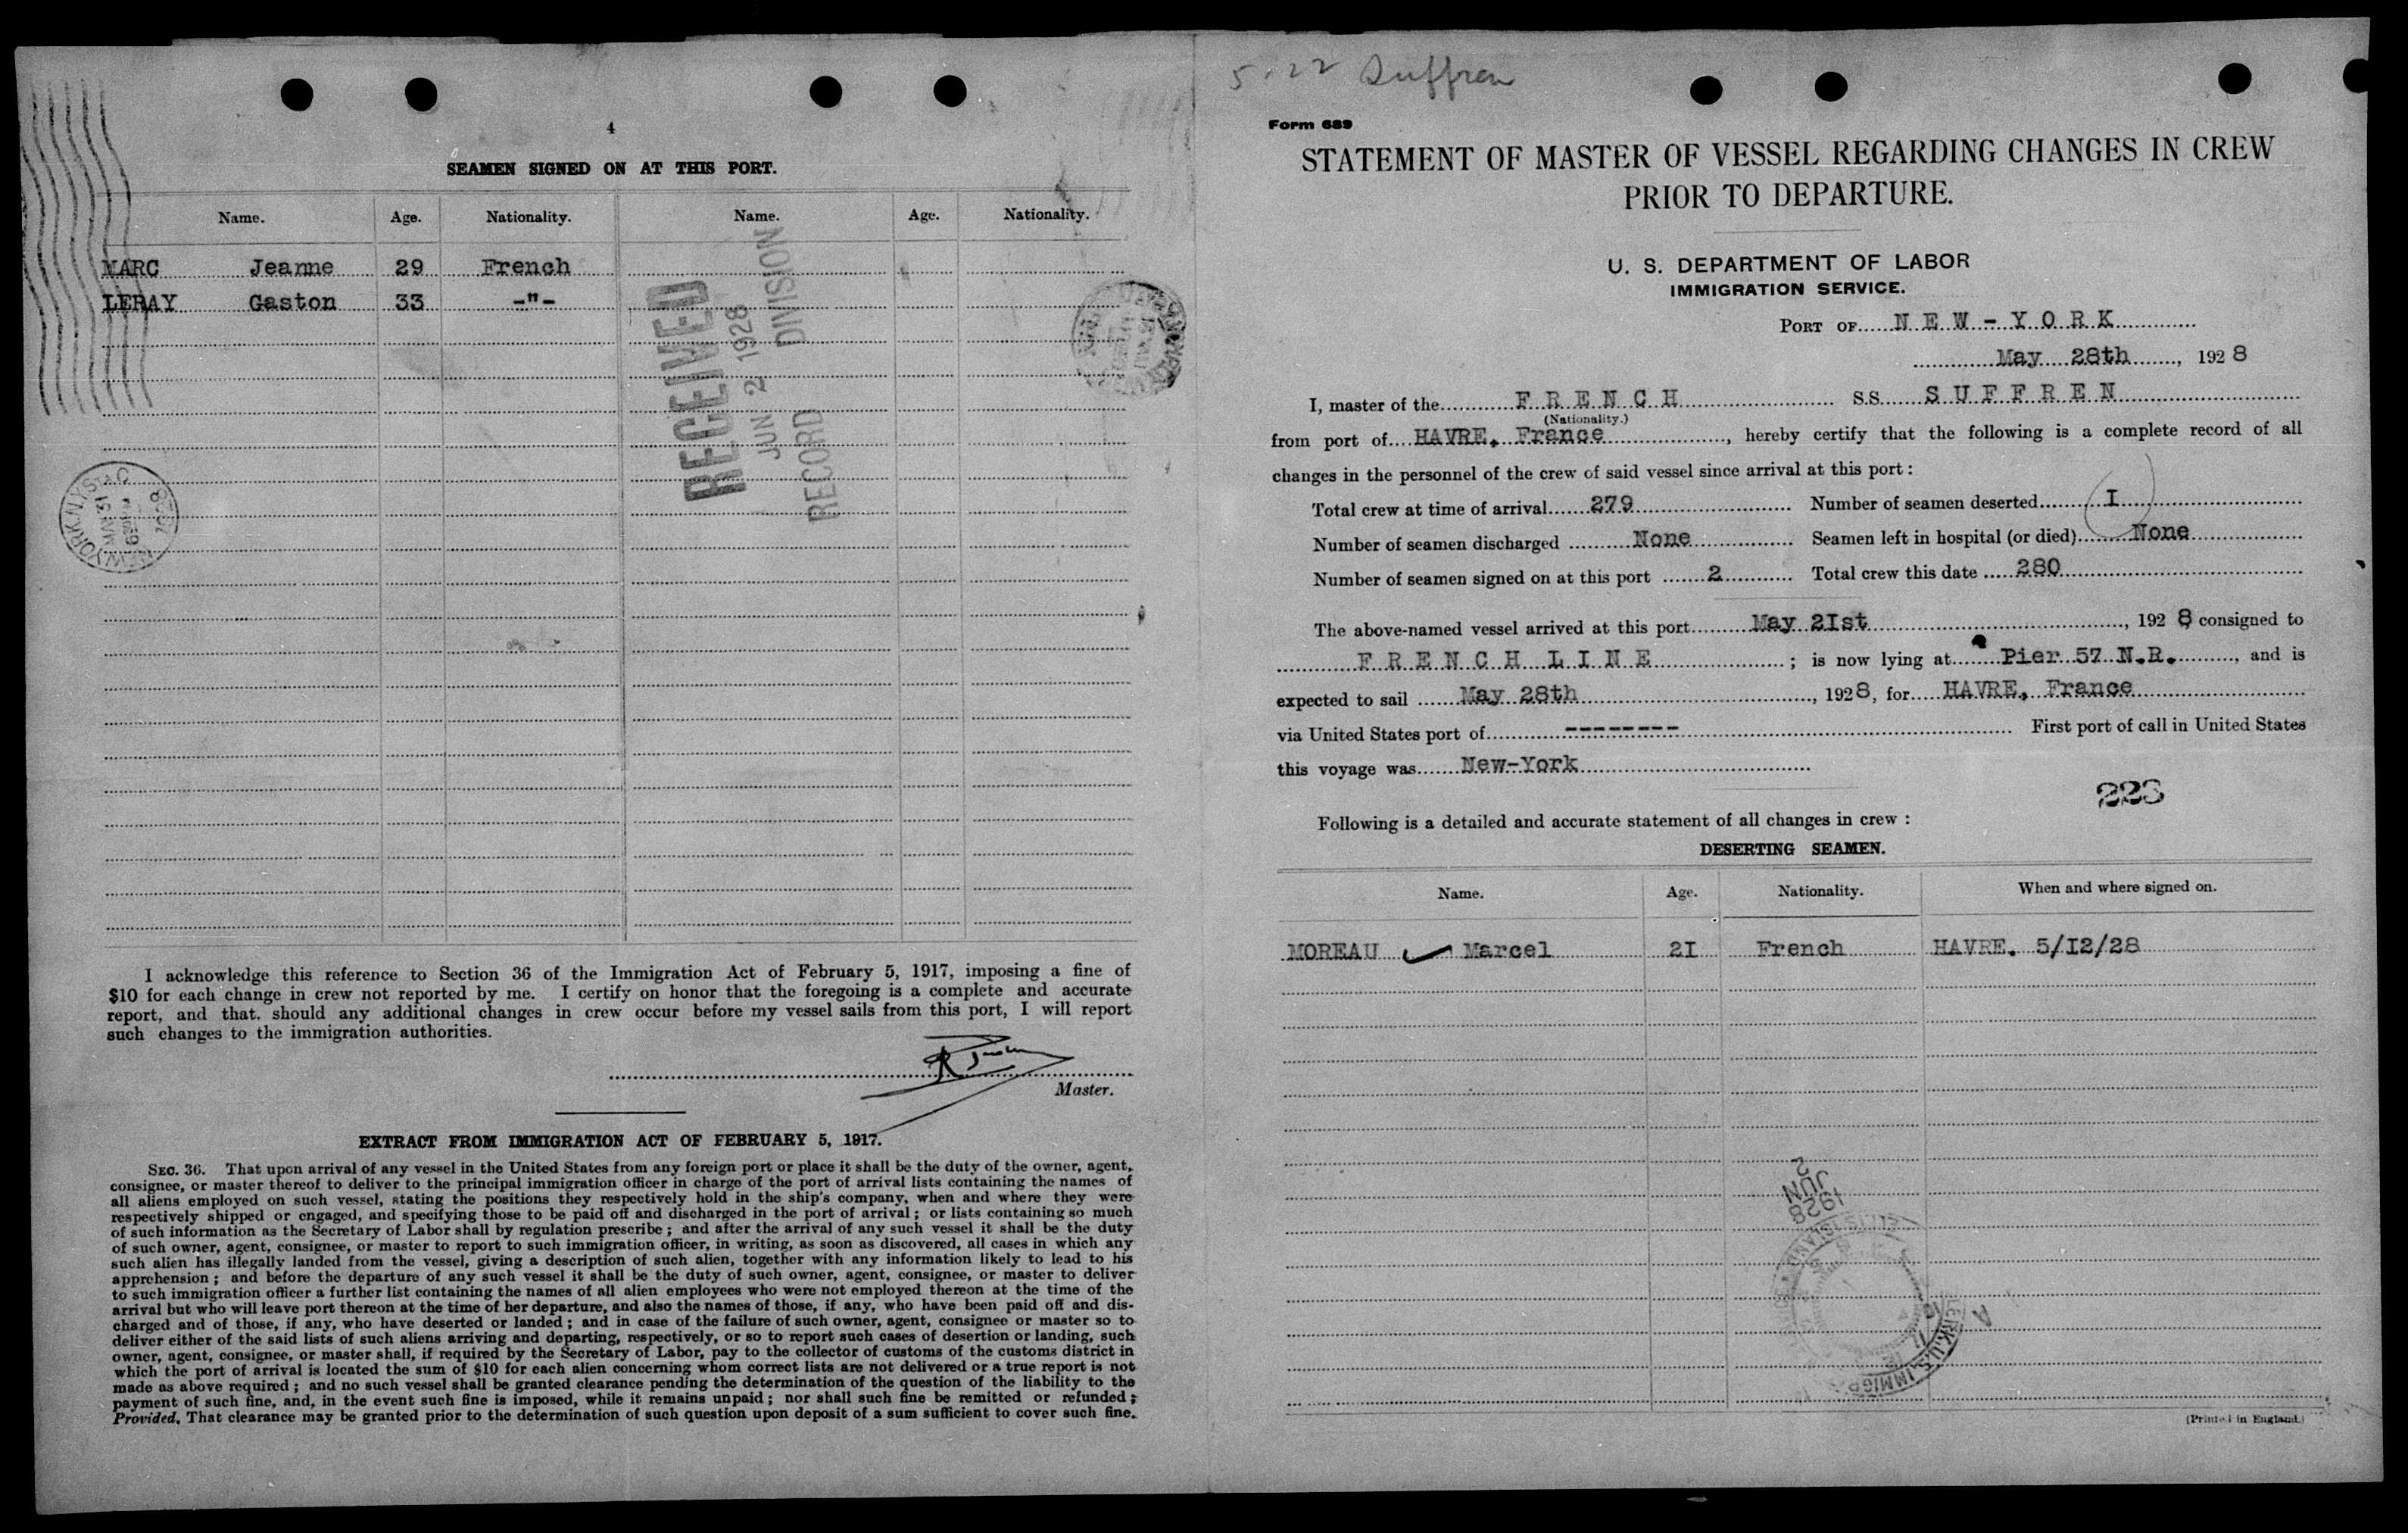 4
SEAMEN SIGNED ON AT THIS PORT.
Name. Age. Nationality. Name. Age. Nationality.
MARC Jeanne 29 French
LERAY Gaston 33 -"-
RECEIVED
JUN 2 1928
RECORD DIVISION
NEW YORK, N.Y. STA C
MAY 31
630 PM
1928
I acknowledge this reference to Section 36 of the Immigration Act of February 5, 1917, imposing a fine of
$10 for each change in crew not reported by me. I certify on honor that the foregoing is a complete and accurate
report, and that. should any additional changes in crew occur before my vessel sails from this port, I will report
such changes to the immigration authorities.
Master.
EXTRACT FROM IMMIGRATION ACT OF FEBRUARY 5, 1917.
SEC. 36. That upon arrival of any vessel in the United States from any foreign port or place it shall be the duty of the owner, agent,
consignee, or master thereof to deliver to the principal immigration officer in charge of the port of arrival lists containing the names of
all aliens employed on such vessel, stating the positions they respectively hold in the ship's company, when and where they were
respectively shipped or engaged, and specifying those to be paid off and discharged in the port of arrival; or lists containing so much
of such information as the Secretary of Labor shall by regulation prescribe; and after the arrival of any such vessel it shall be the duty
of such owner, agent, consignee, or master to report to such immigration officer, in writing, as soon as discovered, all cases in which any
such alien has illegally landed from the vessel, giving a description of such alien, together with any information likely to lead to his
apprehension; and before the departure of any such vessel it shall be the duty of such owner, agent, consignee, or master to deliver
to such immigration officer a further list containing the names of all alien employees who were not employed thereon at the time of the
arrival but who will leave port thereon at the time of her departure, and also the names of those, if any, who have been paid off and dis-
charged and of those, if any, who have deserted or landed; and in case of the failure of such owner, agent, consignee or master so to
deliver either of the said lists of such aliens arriving and departing, respectively, or so to report such cases of desertion or landing, such
owner, agent, consignee, or master shall, if required by the Secretary of Labor, pay to the collector of customs of the customs district in
which the port of arrival is located the sum of $10 for each alien concerning whom correct lists are not delivered or a true report is not
made as above required; and no such vessel shall be granted clearance pending the determination of the question of the liability to the
payment of such fine, and, in the event such fine is imposed, while it remains unpaid; nor shall such fine be remitted or refunded;
Provided, That clearance may be granted prior to the determination of such question upon deposit of a sum sufficient to cover such fine.
5-22 Suffren
Form 689
STATEMENT OF MASTER OF VESSEL REGARDING CHANGES IN CREW
PRIOR TO DEPARTURE.
U. S. DEPARTMENT OF LABOR
IMMIGRATION SERVICE.
PORT OF NEW-YORK
May 28th, 1928
I, master of the FRENCH SS. SUFFREN
(Nationality.)
from port of HAVRE, France, hereby certify that the following is a complete record of all
changes in the personnel of the crew of said vessel since arrival at this port:
Total crew at time of arrival 279 Number of seamen deserted I
Number of seamen discharged None Seamen left in hospital (or died) None
Number of seamen signed on at this port 2 Total crew this date 280
The above-named vessel arrived at this port May 2Ist, 1928 consigned to
FRENCH LINE; is now lying at Pier 57 N.R., and is
expected to sail May 28th, 1928, for HAVRE, France
via United States port of -------- First port of call in United States
this voyage was New-York
223
Following is a detailed and accurate statement of all changes in crew:
DESERTING SEAMEN.
Name. Age. Nationality. When and where signed on.
MOREAU ✓ Marcel 2I French HAVRE. 5/I2/28
2
JUN
1928
ELLIS ISLAND
(Printed in England.)